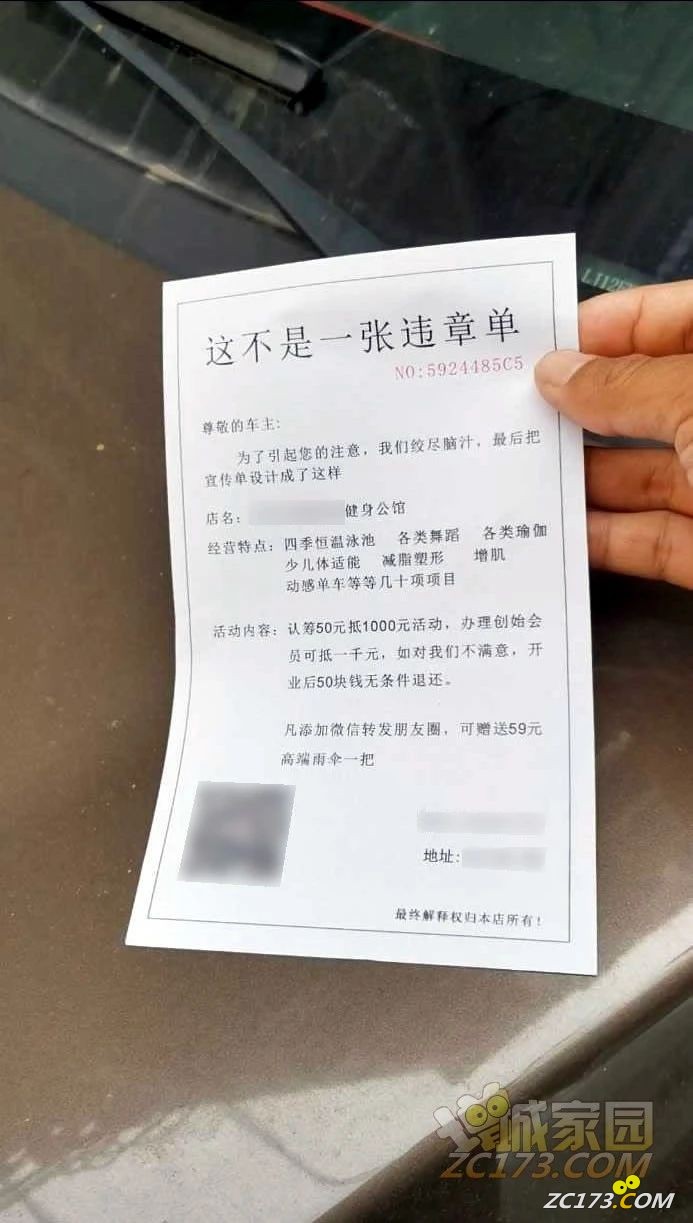 这不是一张违章单
NO:5924485C5
尊敬的车主:
为了引起您的注意，我们绞尽脑汁，最后把
宣传单设计成了这样
店名: 健身公馆
经营特点: 四季恒温泳池 各类舞蹈 各类瑜伽
少儿体适能 减脂塑形 增肌
动感单车等等几十项项目
活动内容: 认筹50元抵1000元活动，办理创始会
员可抵一千元，如对我们不满意，开
业后50块钱无条件退还。
凡添加微信转发朋友圈，可赠送59元
高端雨伞一把
地址:
最终解释权归本店所有!
诚家园
ZC173.COM
ZC173.COM